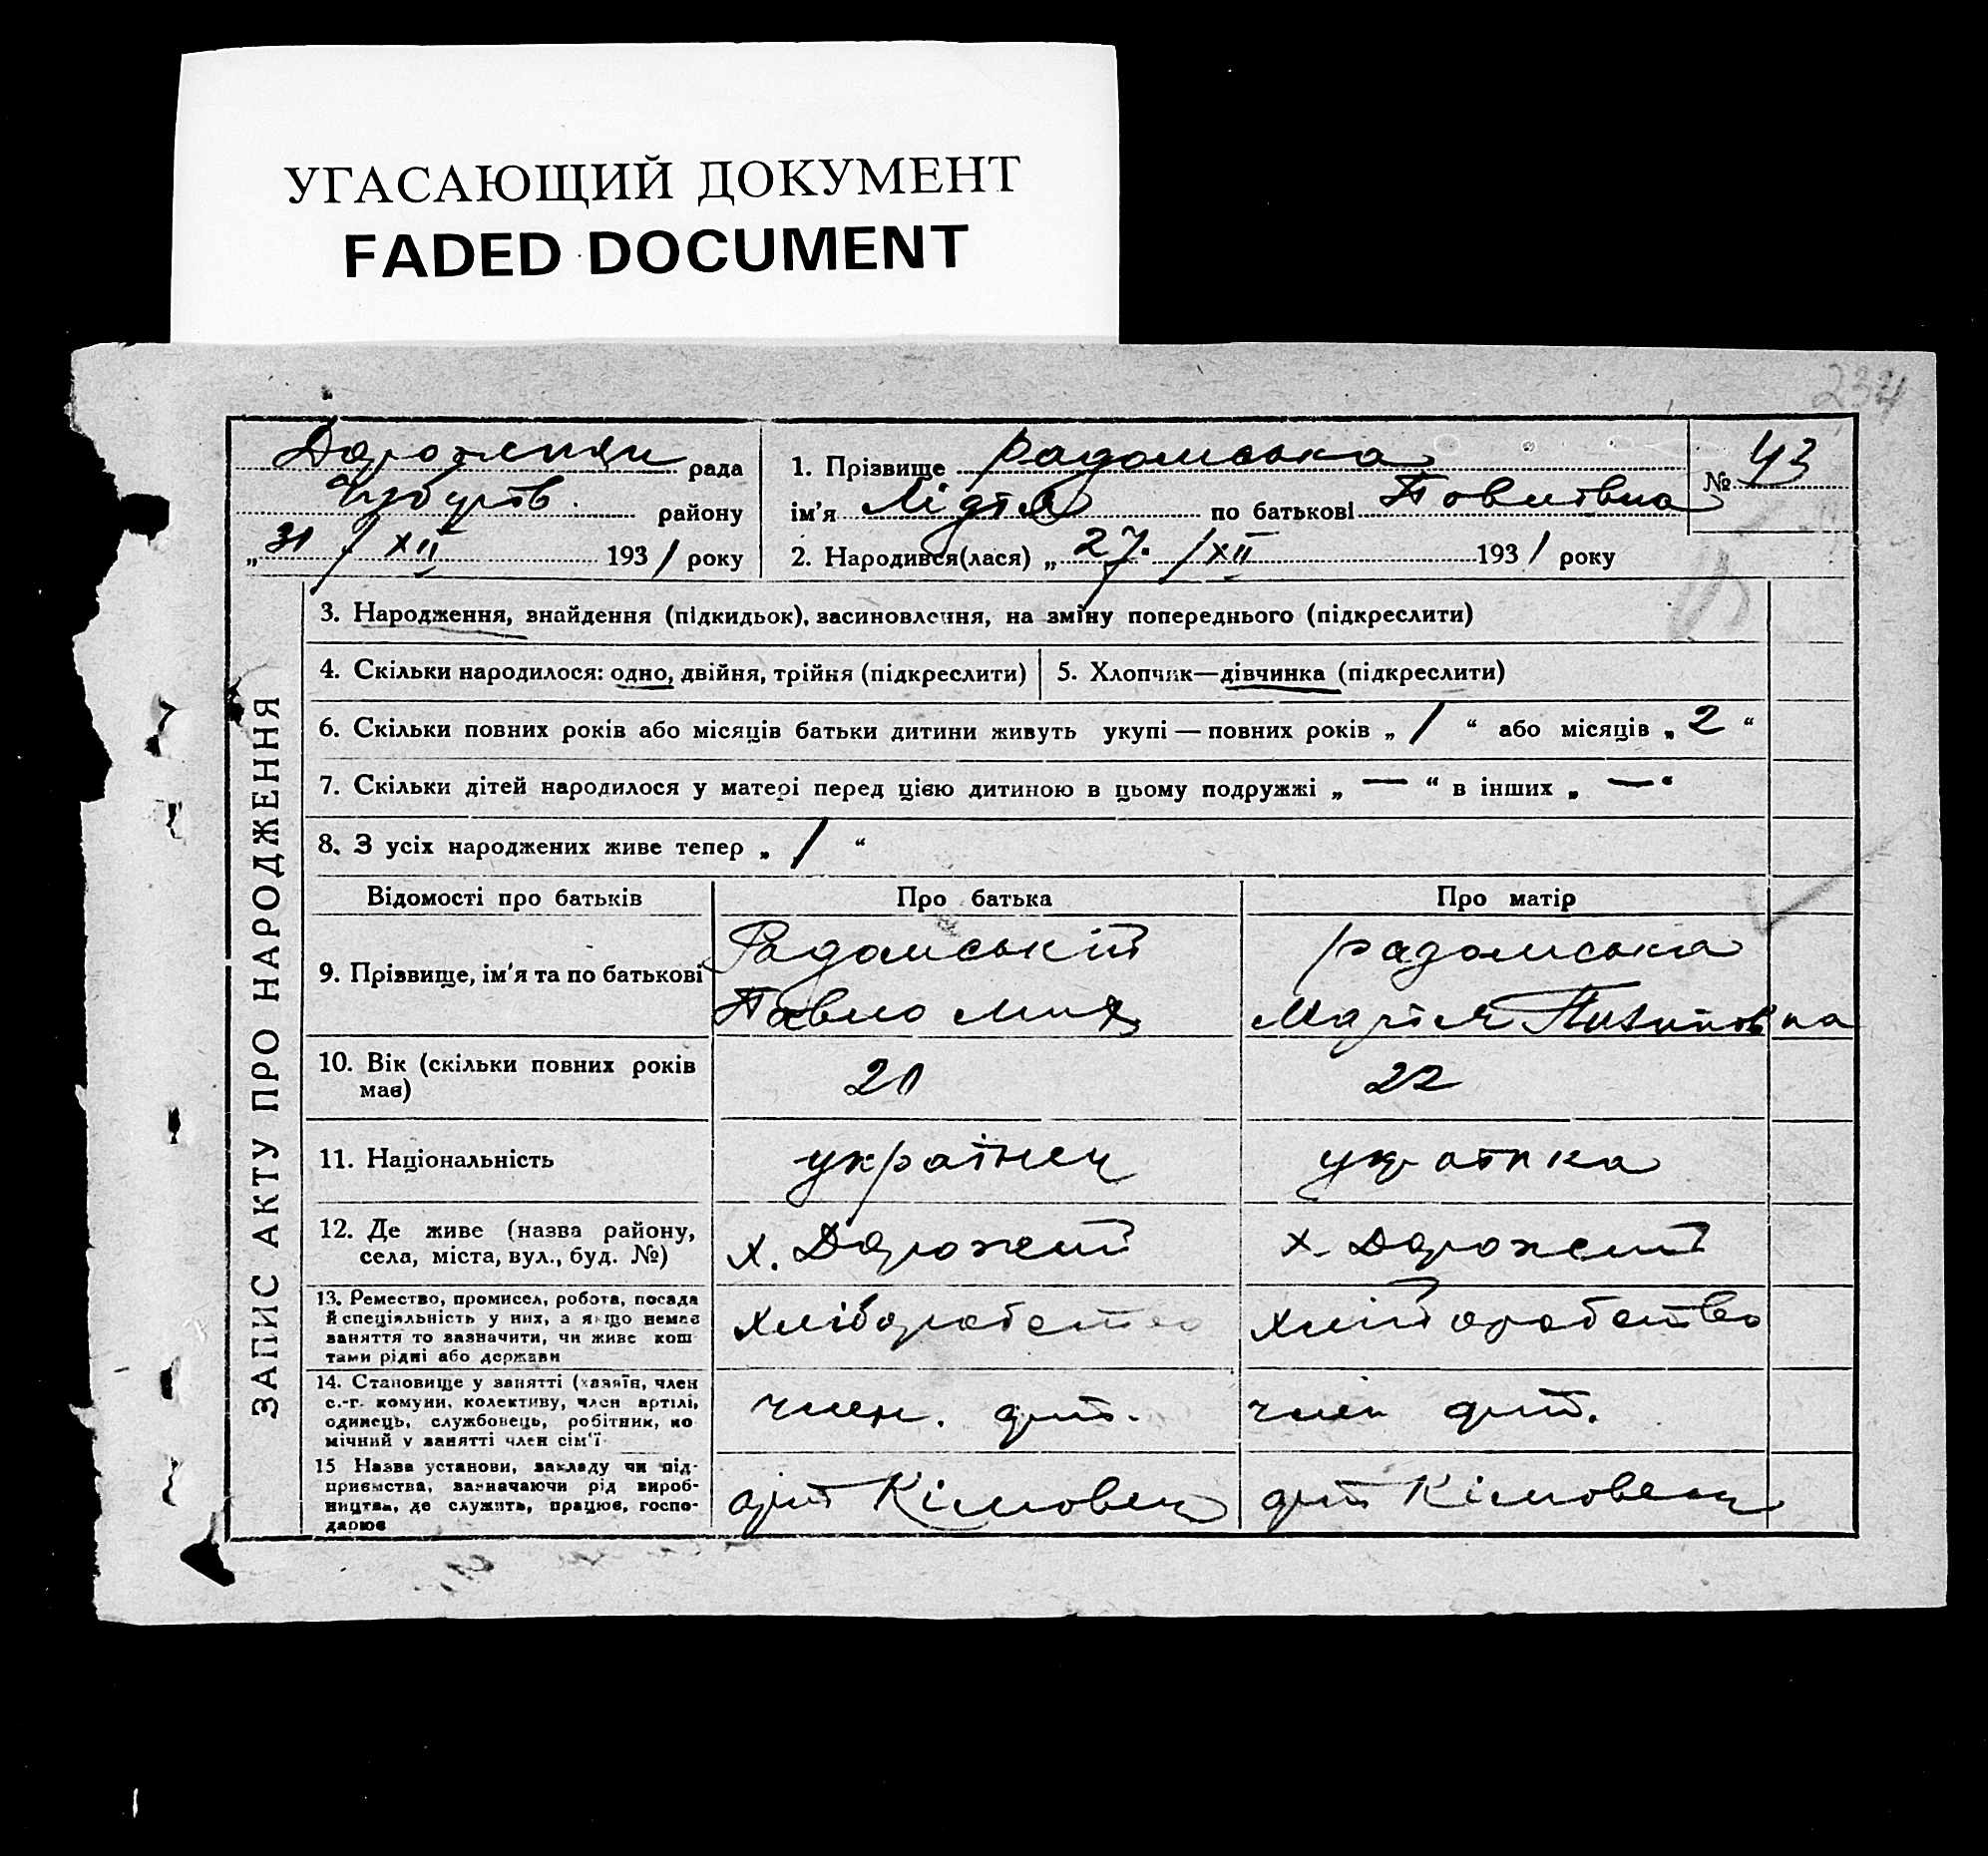 УГАСАЮЩИЙ ДОКУМЕНТ
FADED DOCUMENT
234
рада
району
„31 / XII 1931 року
1. Прізвище Радомська
ім'я Лідія по батькові Павлівна
2. Народився(лася) „27. / XII 1931 року
№ 43
ЗАПИС АКТУ ПРО НАРОДЖЕННЯ
3. Народження, знайдення (підкидьок), засиновлення, на зміну попереднього (підкреслити)
4. Скільки народилося: одно, двійня, трійня (підкреслити)
5. Хлопчик—дівчинка (підкреслити)
6. Скільки повних років або місяців батьки дитини живуть укупі — повних років „ 1 “ або місяців „ 2 “
7. Скільки дітей народилося у матері перед цією дитиною в цьому подружжі „ — “ в інших „ — “
8. З усіх народжених живе тепер „ 1 “
Відомості про батьків Про батька Про матір
9. Прізвище, ім'я та по батькові
Радомський
Павло
радомська
Марія
10. Вік (скільки повних років
має)
21
22
11. Національність
українец
українка
12. Де живе (назва району,
села, міста, вул., буд. №)
х.
х.
13. Ремество, промисел, робота, посада
й спеціяльність у них, а якщо немає
заняття то зазначити, чи живе кош
тами рідні або держави
хліборобство
хліборобство
14. Становище у занятті (хазяїн, член
с.-г. комуни, колективу, член артілі,
одинець, службовець, робітник, по
мічний у занятті член сім'ї
член. арт.
член арт.
15 Назва установи, закладу чи під-
приємства, зазначаючи рід вироб-
ництва, де служить, працює, госпо-
дарює
арт Кімовец
арт Кімовец